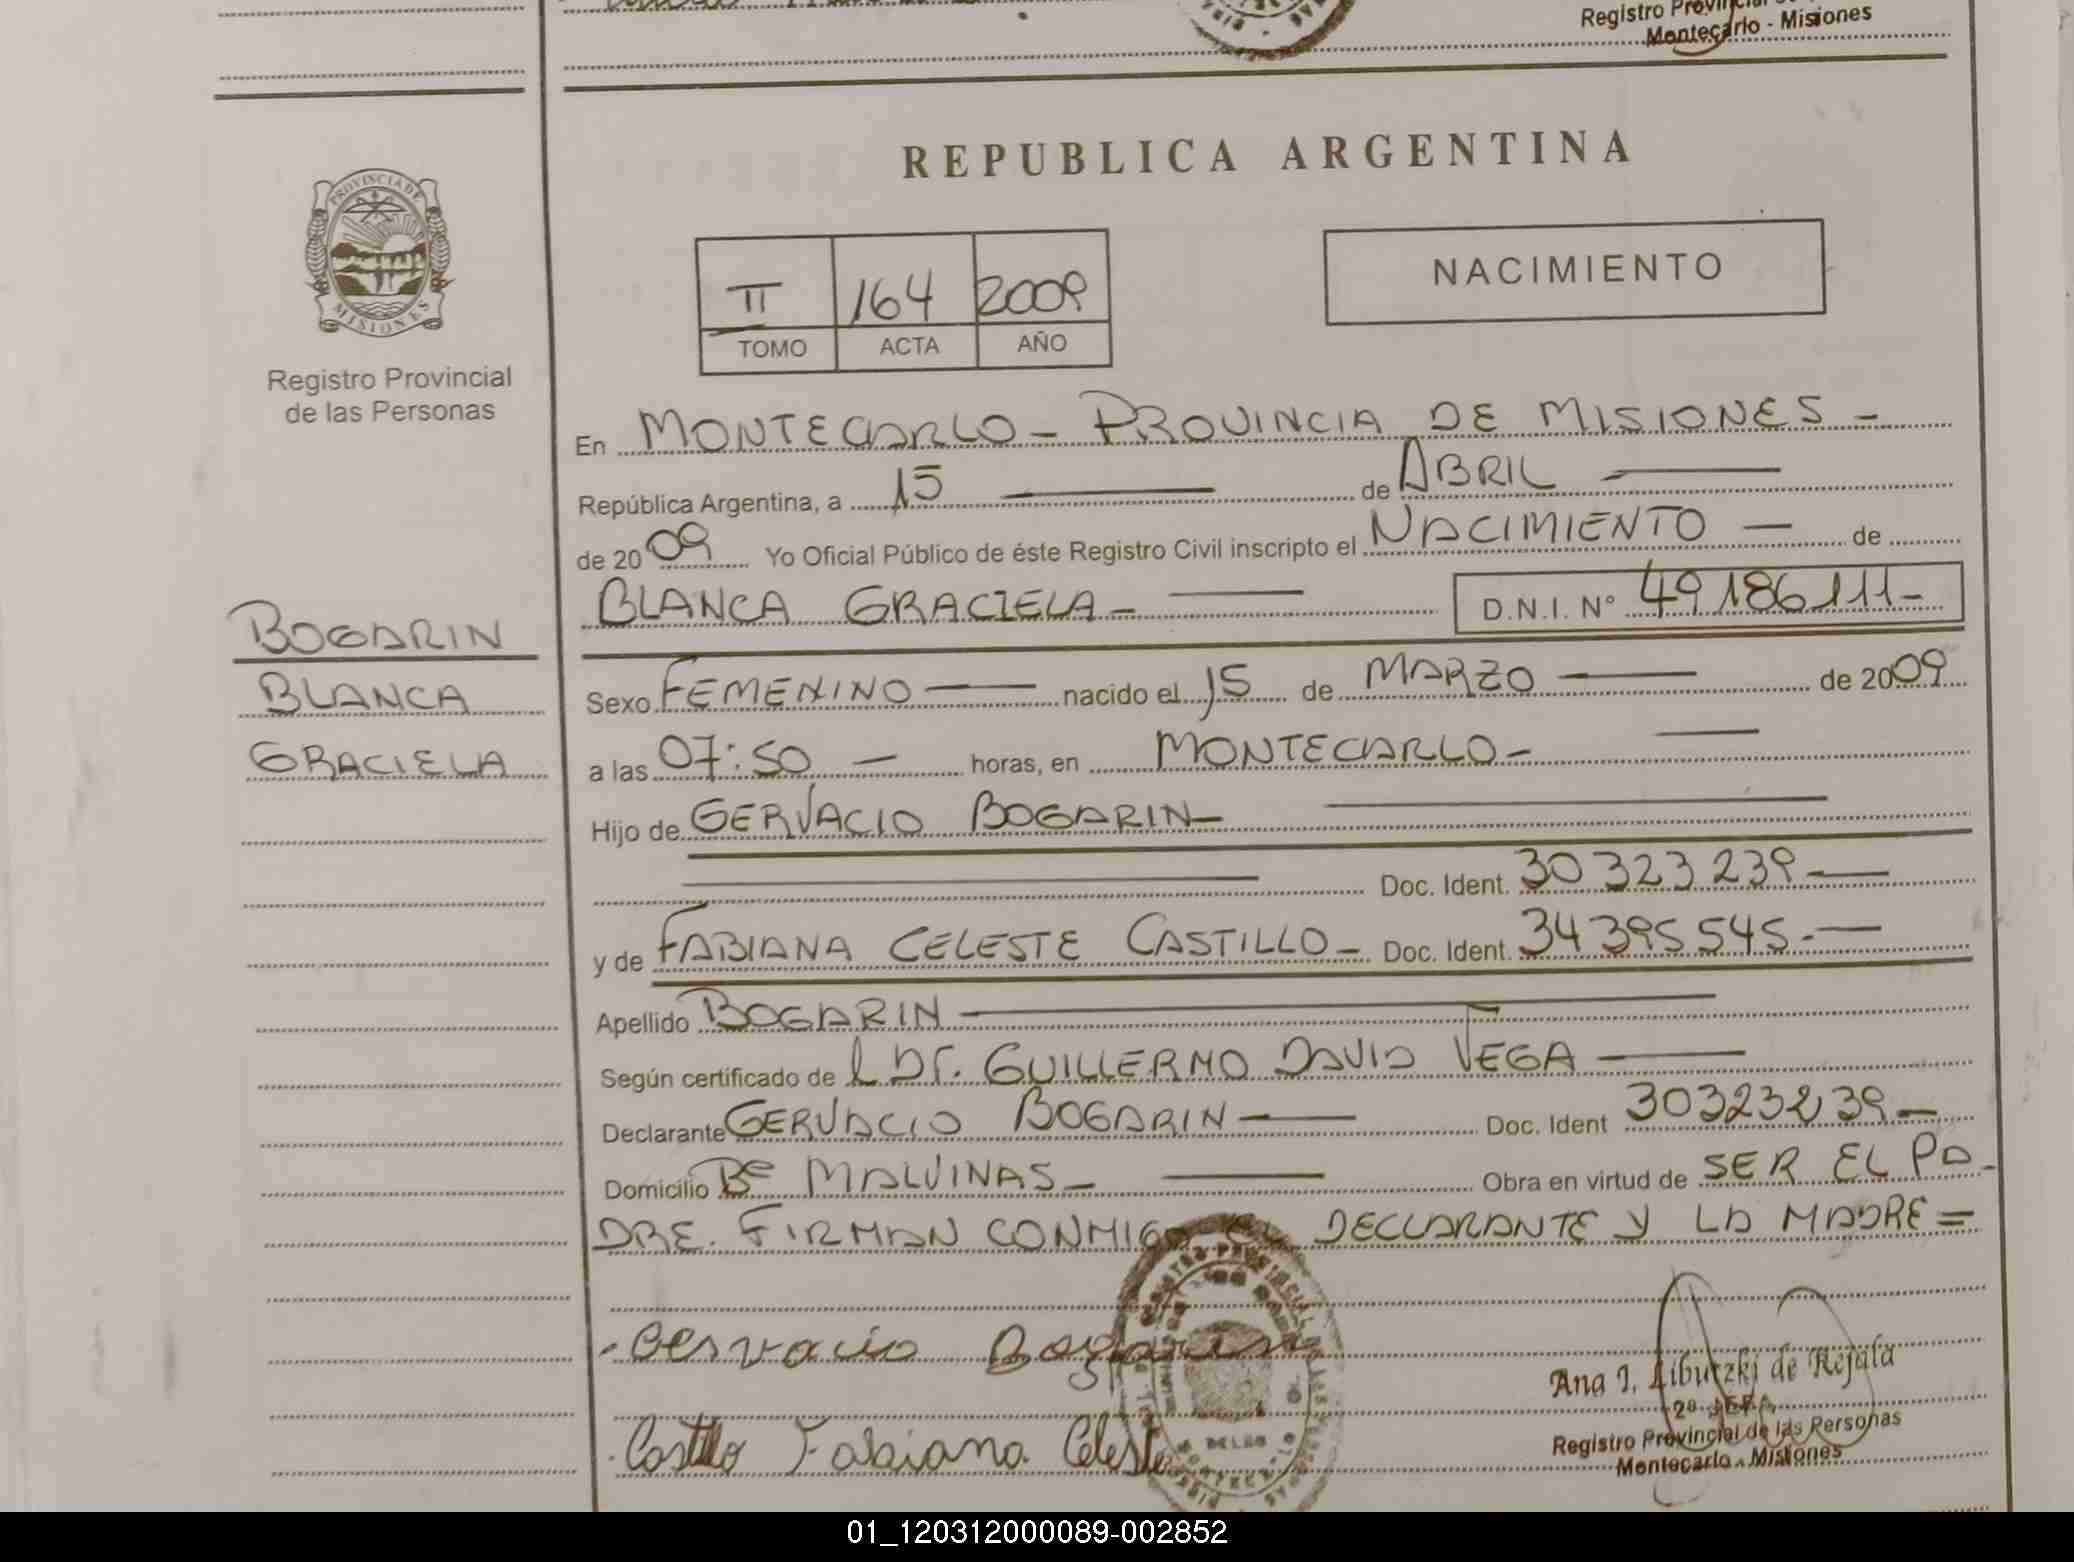 Registro Provincial
Montecarlo - Misiones
REPUBLICA ARGENTINA
PROVINCIA DE
MISIONES
Registro Provincial
de las Personas
II 164 2009
TOMO ACTA AÑO
NACIMIENTO
En MONTECARLO - PROVINCIA DE MISIONES -
República Argentina, a 15 de ABRIL
de 2009 Yo Oficial Público de éste Registro Civil inscripto el NACIMIENTO de
BLANCA GRACIELA - D.N.I. N° 49186111-
BOGARIN
BLANCA
GRACIELA
Sexo FEMENINO nacido el 15 de MARZO de 2009
a las 07:50 horas, en MONTECARLO -
Hijo de GERVACIO BOGARIN
Doc. Ident. 30 323 239
y de FABIANA CELESTE CASTILLO - Doc. Ident. 34 395 545.-
Apellido BOGARIN
Según certificado de L Dr. GUILLERMO DAVID VEGA
Declarante GERVACIO BOGARIN Doc. Ident 30323239 -
Domicilio Bº MALVINAS - Obra en virtud de SER EL PA-
DRE. FIRMAN CONMIGO EL DECLARANTE Y LA MADRE =
Gervacio Bogarin
Castillo Fabiana Celeste
Ana I. Libutzki de Rejala
2º JEFA
Registro Provincial de las Personas
Montecarlo - Misiones
01_120312000089-002852